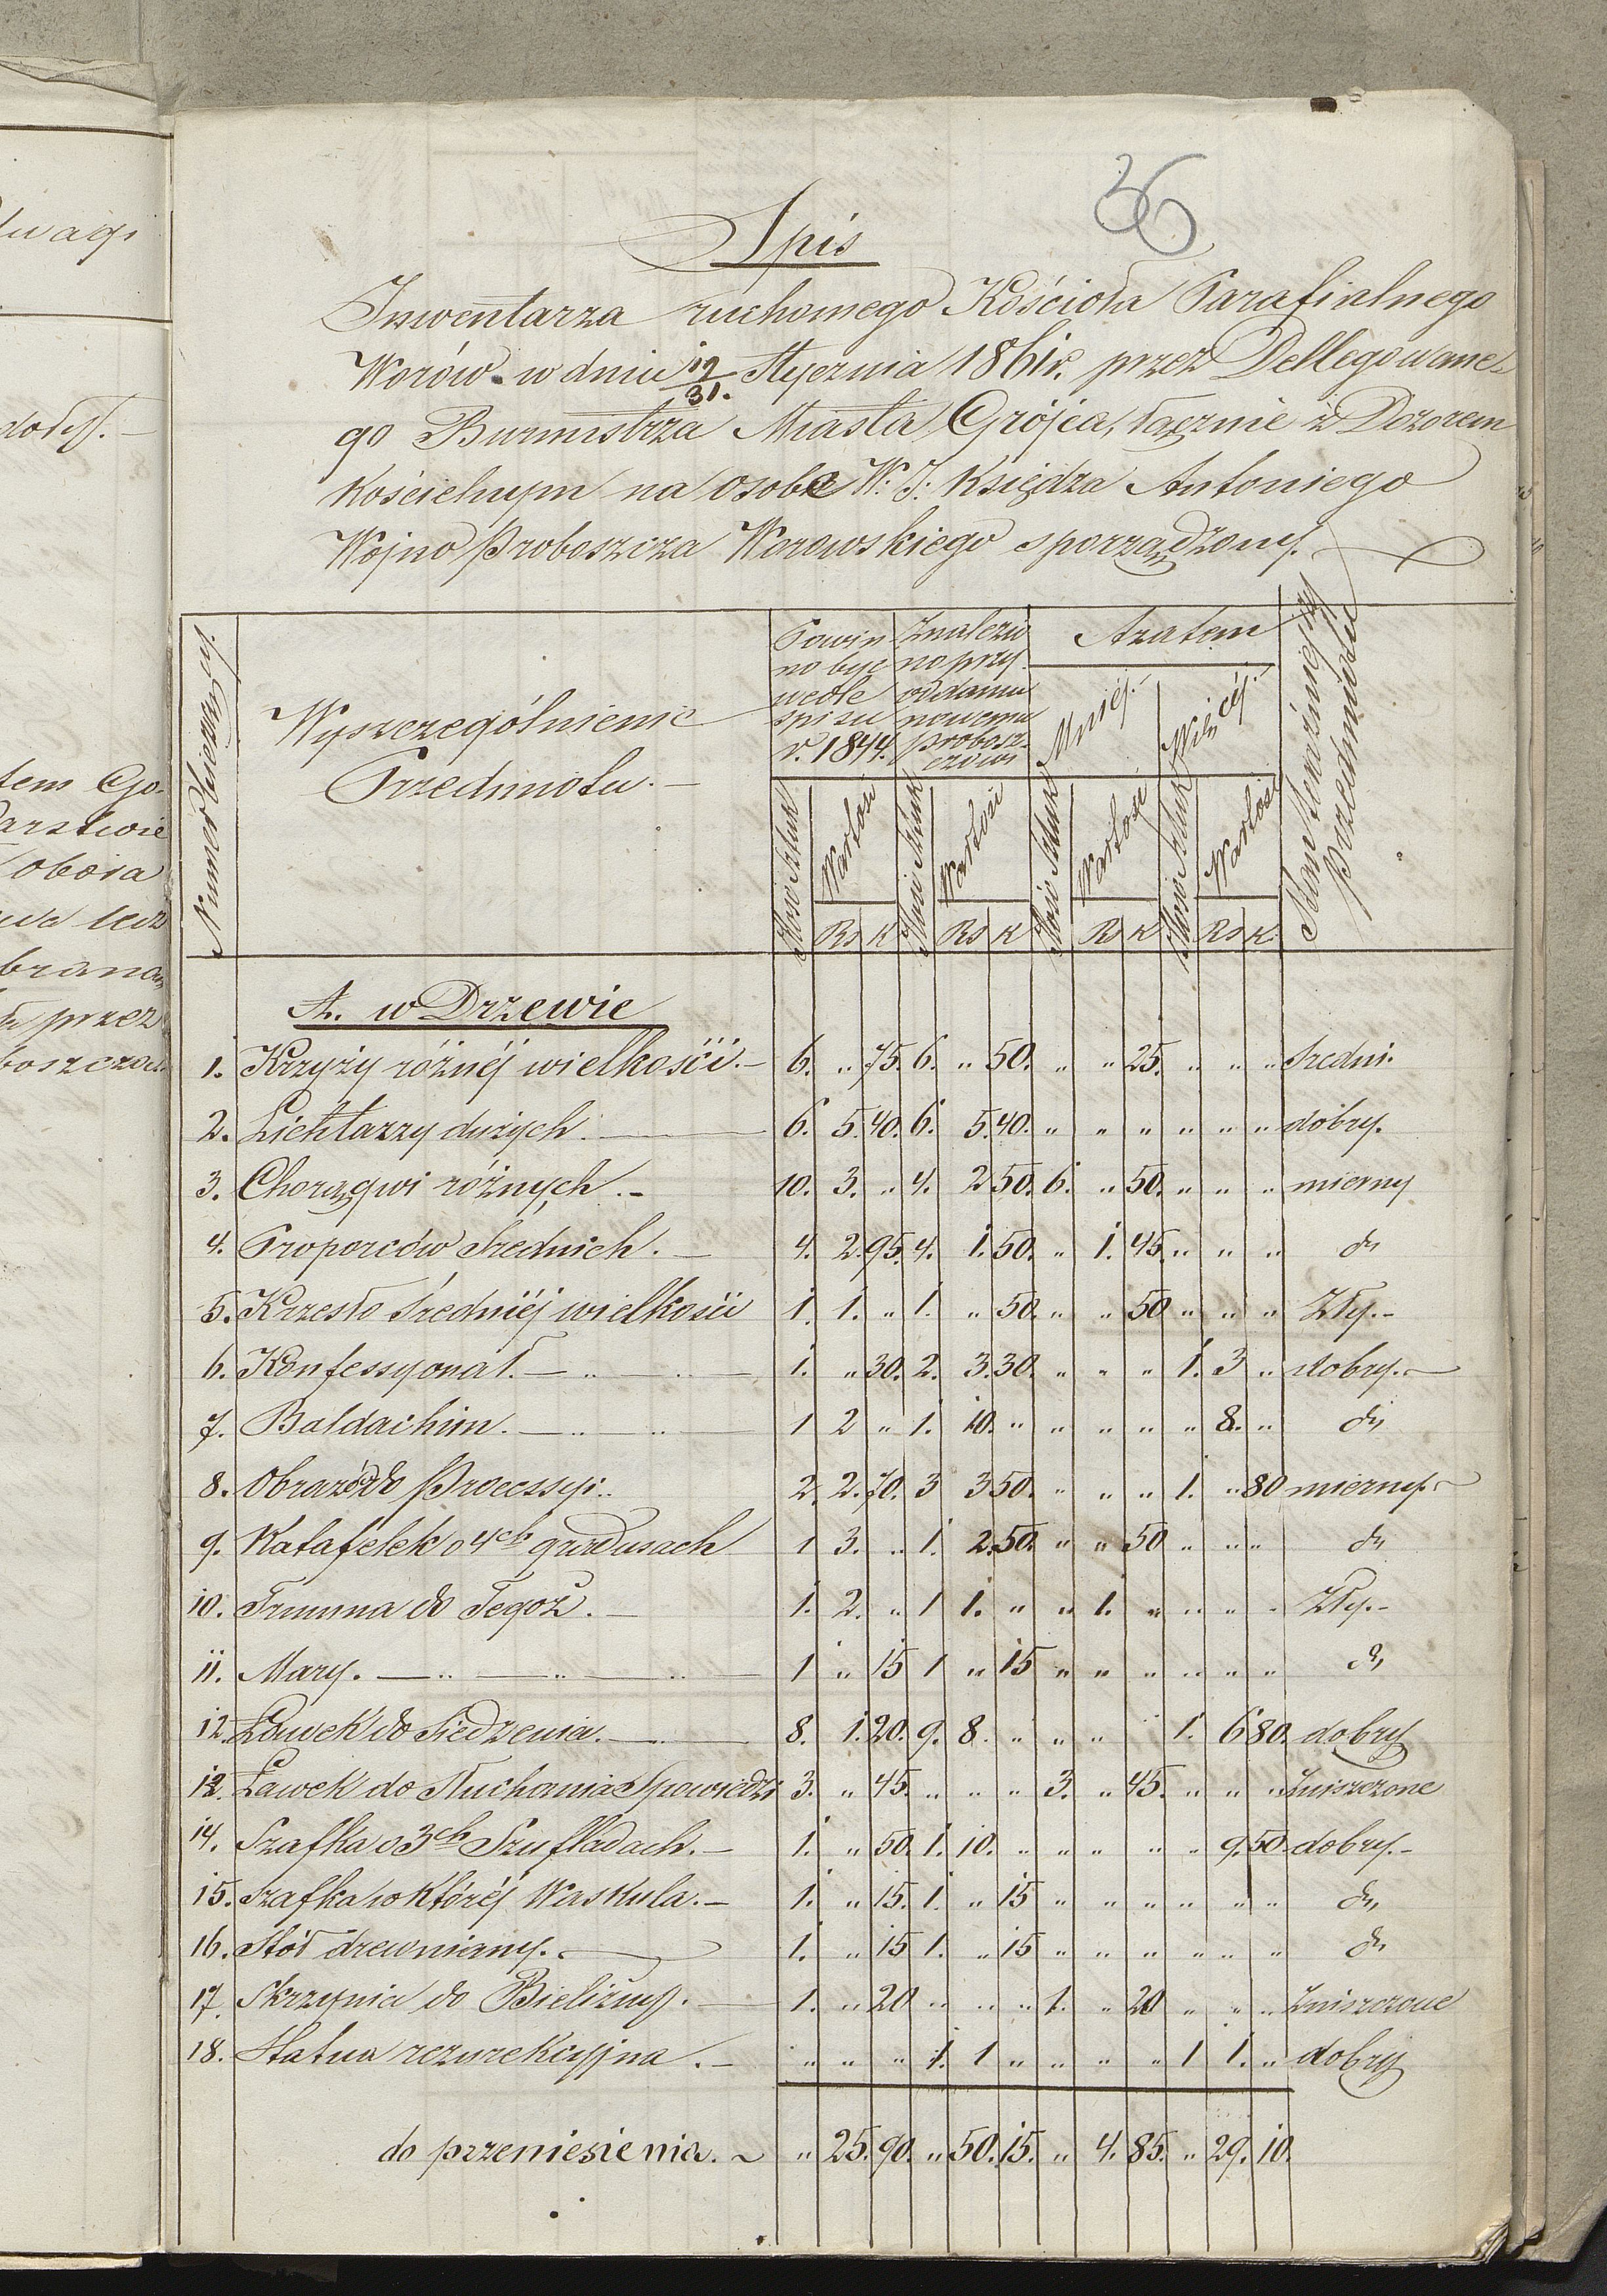 wagi
dość.
tem Go-
darstwie
obora
brana
przez
36
Spis
Inwentarza ruchomego Kościoła Parafialnego
Worów. w dniu 19/31. Stycznia 1861r. przez Dellegowane-
go Burmistrza Miasta Grójca, łącznie z Dozorem
Kościelnym na osobę W: J: Księdza Antoniego
Wojno Proboszcza Worowskiego sporządzony.
Nummer bieżący. | Wyszczególnienie Przedmiotu. — | Powinno być wedle spisu r. 1844. | Znalezio no przy oddaniu nowemu probosz- czowi | A zatem | Stan teraźniejszy przedmiotu
Mniej. — | Więcéj. —
Ilość Sztuk | Wartość | Ilość Sztuk | Wartość | Ilość Sztuk | Wartość | Ilość Sztuk | Wartość
Rs | K | Rs | K | Rs | K | Rs | K.
A. w Drzewie
1. Krzyży różnéj wielkości. — 6. „ 75. 6. „ 50. „ „ 25. „ „ „ Średni.
2. Lichtarzy dużych. — 6. 5. 40. 6. 5. 40. „ „ „ „ „ „ dobry.
3. Chorągwi różnych. — 10. 3. „ 4. 2 50. 6. „ 50. „ „ „ mierny
4. Proporców Średnich. — 4. 2. 95. 4. 1. 50. „ 1. 45. „ „ „ do
5. Krzesło Średniéj wielkości 1. 1. „ 1. „ 50. „ „ 50 „ „ „ Zły. —
6. Konfessyonał. — „ — „ — 1. „ 30. 2. 3. 30. „ „ „ 1. 3 „ dobry. —
7. Baldachim. — „ — „ — 1 2 „ 1. 10. „ „ „ „ „ 8. „ do
8. Obrazów do Processyi. „ 2. 2. 70. 3 3 50. „ „ „ 1. „ 80 mierny. —
9. Katafelek o 4ch gradusach 1 3. „ 1. 2. 50. „ „ 50 „ „ „ do
10. Trumna do Tegoż. — 1. 2. „ 1 1. „ „ 1. „ „ „ „ Zły. —
11. Mary. — „ — „ — „ — 1 „ 15 1 „ 15 „ „ „ „ „ „ do
12. Ławek do Siedzenia. — „ — 8. 1. 20. 9. 8. „ „ „ „ 1. 6 80. dobry
13. Ławek do Słuchania Spowiedzi 3. „ 45. „ „ „ 3. „ 45. „ „ „ Zniszczone
14. Szafka o 3ch Szufladach. — 1. „ 50. 1. 10. „ „ „ „ „ 9. 50. dobry. —
15. Szafka w któréj Waskula. — 1. „ 15. 1. „ 15 „ „ „ „ „ „ do
16. Stół drewniany. — 1. „ 15 1. „ 15 „ „ „ „ „ „ do
17. Skrzynia do Bielizny. — 1. „ 20 „ „ „ 1. „ 20 „ „ „ Zniszczone
18. Statua rezurekcyjna. — „ „ „ 1. 1 „ „ „ „ 1 1. „ dobry
do przeniesienia. ~ „ 25. 90. „ 50. 15. „ 4. 85. „ 29. 10.